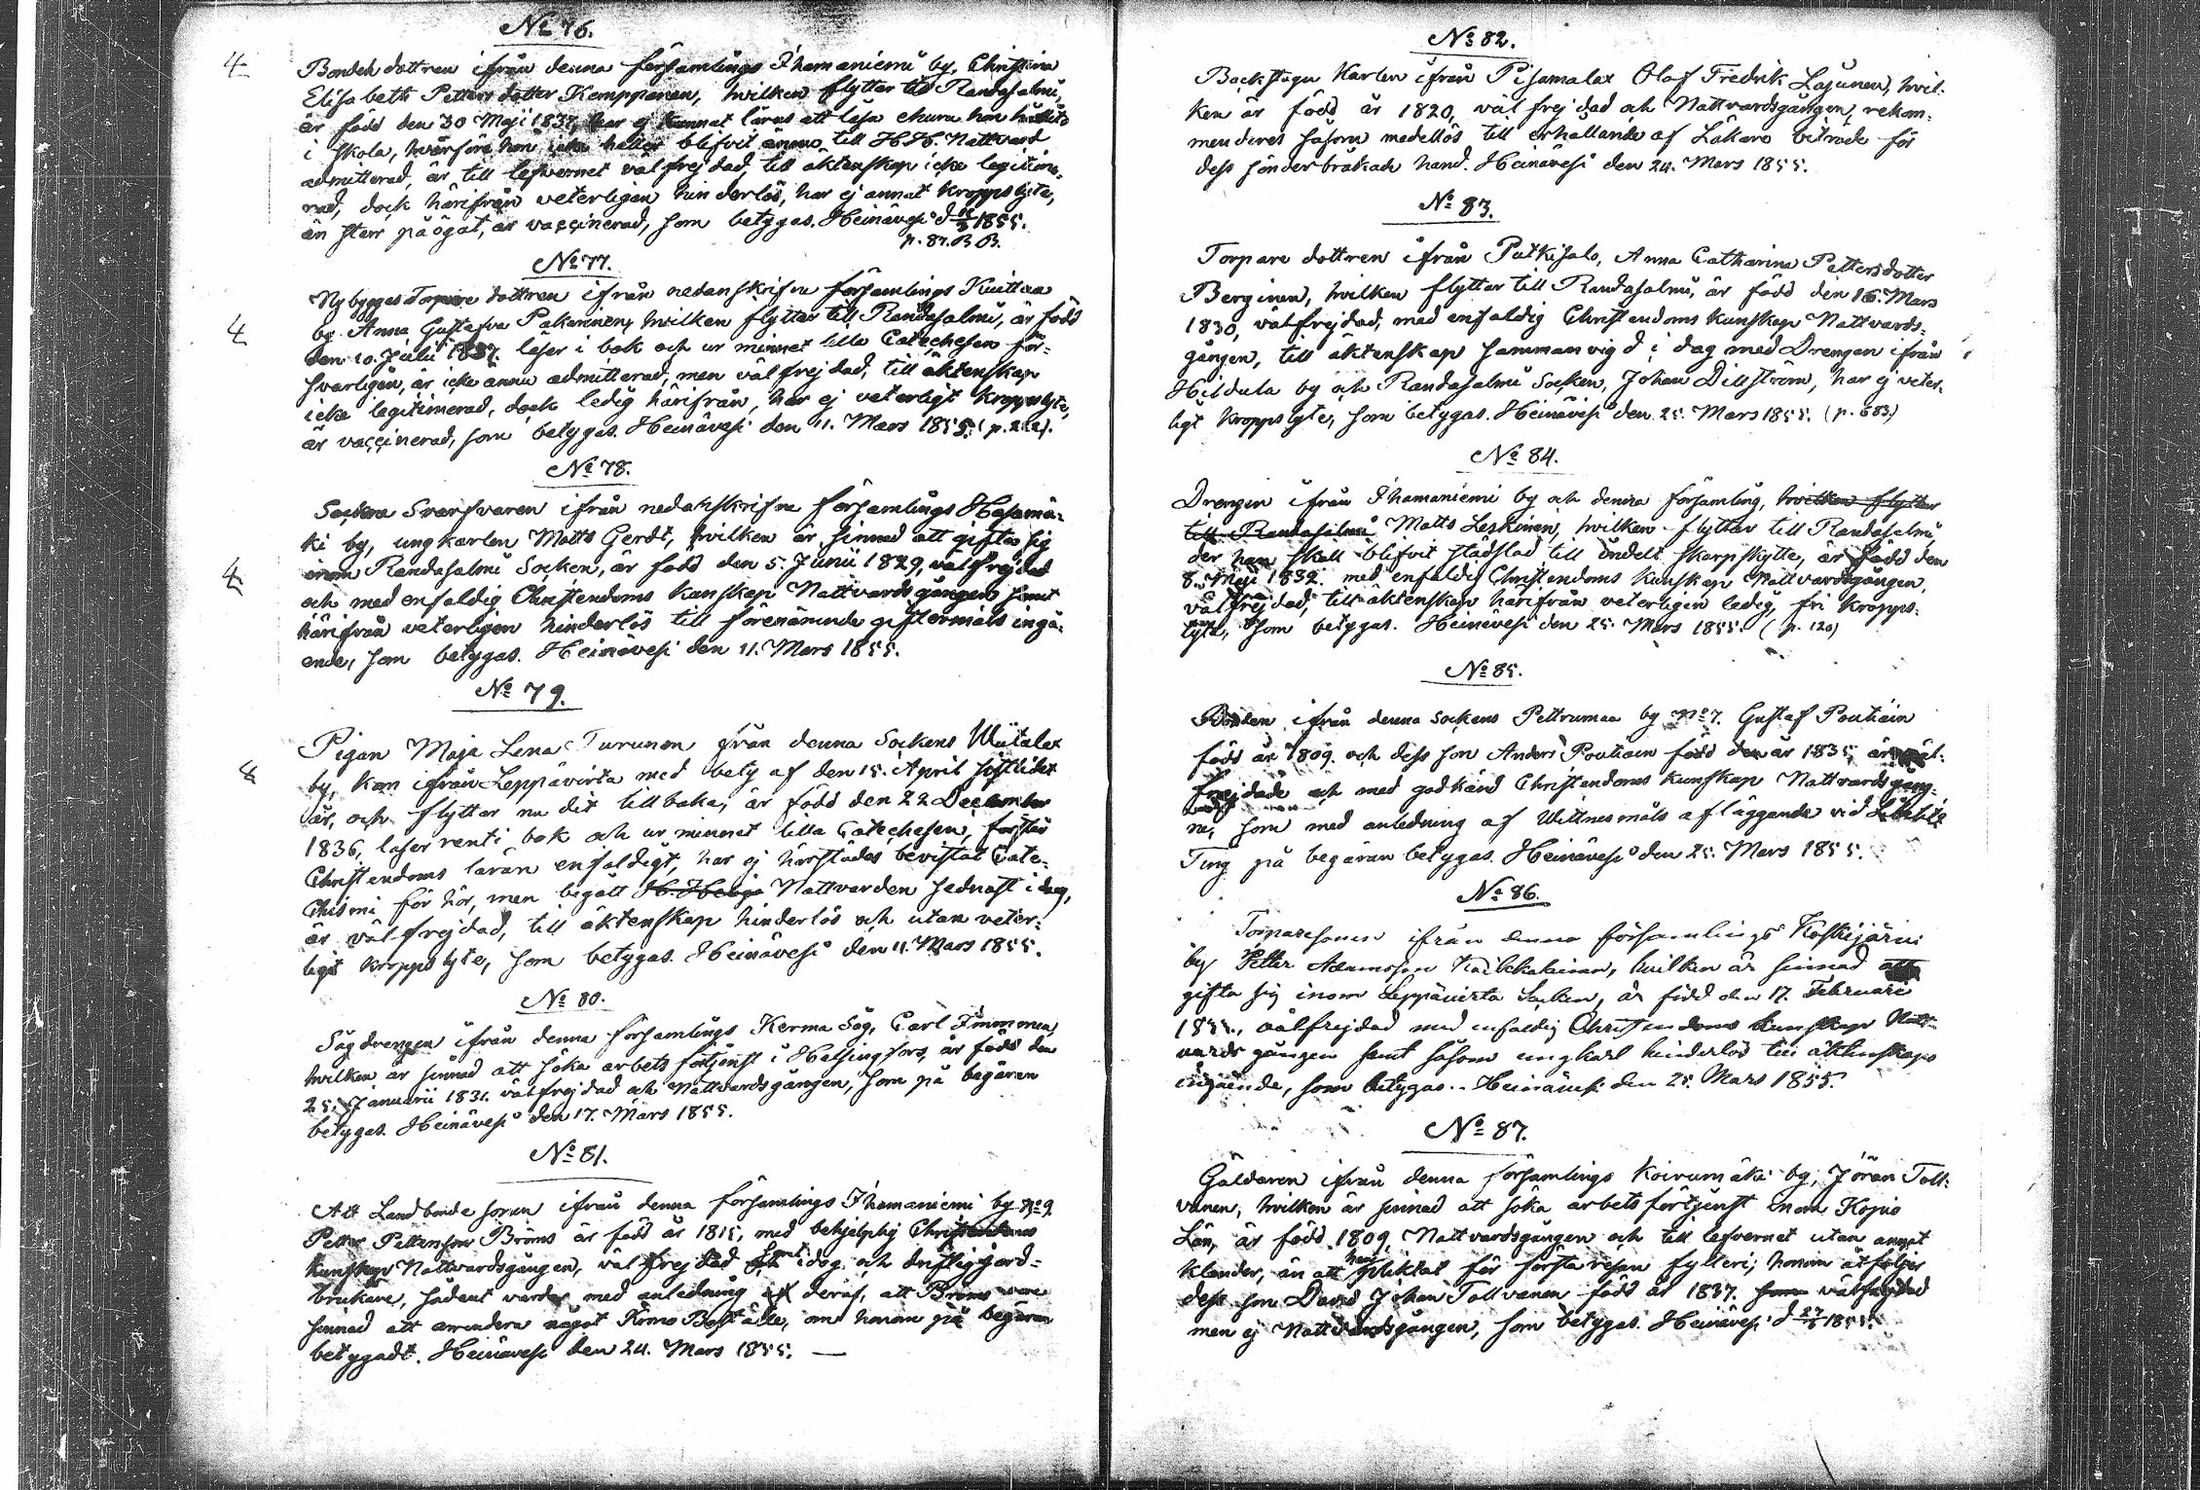 No 76.
4
Bondedottren ifrån denna församlings Ihamaniemi by, Christina
Elisabeth Pettersdotter Kemppanen, hvilken flyttar till Randasalmi,
är född den 30 Maji 1837, har ej kunnat läras att läsa ehuru hon
i skola, hvarföre hon icke heller blifvit ännu till H. H. Nattvard
admitterad, är till lefvernet välfrejdad, till äktenskap icke legitime-
rad, dock härifrån veterligen hinderlös, har ej annat kroppslyte,
än starr på ögat, är vaccinerad, som betygas. Heinävesi d 1855.
p. 87. B. B.
No 77.
4
Nybygges Torpare dottren ifrån nedanskrifne församlings
by Anna Gustafva Pakarinen, hvilken flyttar till Randasalmi, är född
den 10. Julii 1837. läser i bok och ur minnet lilla Catechesen för-
svarligen, är icke ännu admitterad, men välfrejdad, till äktenskap
icke legitimerad, dock ledig härifrån, har ej veterligt kroppslyte,
är vaccinerad, som betygas. Heinävesi den 11. Mars 1855.
No 78.
4
Socken Svarfvaren ifrån nedanskrifne församlings Hasumä-
ki by, ungkarlen Matts Gerdt, hvilken är sinnad att gifta sig
inom Randasalmi Socken, är född den 5. Junii 1829, välfrejdad
och med enfaldig Christendoms kunskap Nattvardsgången samt
härifrån veterligen hinderlös till förenämnde giftermåls ingå-
ende, som betygas. Heinävesi den 11. Mars 1855.
No 79.
4
Pigan Maja Lena Turunen från denna Sockens Wiitalax
by, kom ifrån Leppävirta med betyg af den 15. April sistlidet
år, och flyttar nu dit tillbaka, är född den 22 December
1836, läser rent i bok och ur minnet lilla Catechesen, förstår
Christendoms läran enfaldigt, har ej härstädes bevistat Cate-
chismi förhör, men begått H. Heliga Nattvarden sednast i dag,
är välfrejdad, till äktenskap hinderlös och utan veter-
ligt kroppslyte, som betygas. Heinävesi den 11. Mars 1855.
No 80.
Sågdrengen ifrån denna församlings Kerma Såg, Carl Immonen
hvilken är sinnad att söka arbetsförtjenst i Helsingfors, är född den
25. Januarii 1831. välfrejdad och Nattvardsgången, som på begäran
betygas. Heinävesi den 17. Mars 1855.
No 81.
Att Landbondesonen ifrån denna församlings Ihamaniemi by No 9
Petter Pettersson Bröms är född år 1815, med behjelplig Christendoms
kunskap Nattvardsgången, välfrejdad samt idog och driftig jord-
brukare, sådant varder med anledning deraf, att Bröms vore
sinnad att arrendera något Krono Boställe, om honom på begäran
betygadt. Heinävesi den 24. Mars 1855. —
No 82.
Backstugu Karlen ifrån Pisamalax Olof Fredrik Lajunen, hvil-
ken är född år 1820, välfrejdad och Nattvardsgången, rekom-
menderes såsom medellös till erhållande af Läkare biträde för
dess sönderbråkade hand. Heinävesi den 24. Mars 1855.
No 83.
Torpare dottren ifrån Putkisalo, Anna Catharina Pettersdotter
Berginen, hvilken flyttar till Randasalmi, är född den 16. Mars
1830, välfrejdad, med enfaldig Christendoms kunskap Nattvards-
gången, till äktenskap sammanvigd i dag med Drengen ifrån
Hildula by och Randasalmi Socken, Johan Dillström, har ej veter-
ligt kroppslyte, som betygas. Heinävesi den 25. Mars 1855. (p. 683.)
No 84.
Drengen ifrån Ihamaniemi by och denna församling, hvilken flyttar
till Randasalmi Matts Leskinen, hvilken flyttar till Randasalmi,
der han skall blifvit städslad till indelt skarpskytte, är född den
8. Maji 1832. med enfaldig Christendoms kunskap Nattvardsgången,
välfrejdad, till äktenskap härifrån veterligen ledig, fri kropps-
lyte, som betygas. Heinävesi den 25. Mars 1855. (p. 120)
No 85.
Bonden ifrån denna Sockens Pettrumaa by No 7. Gustaf Poutiain
född år 1809. och dess son Anders Poutiain född år 1835, äro väl-
frejdade och med godkänd Christendoms kunskap Nattvardsgång-
ne, som med anledning af Wittnesmåls afläggande vid
Ting på begäran betygas. Heinävesi den 25. Mars 1855.
No 86.
Torparesonen ifrån denna församlings Koskijärvi
by Petter Adamsson, hvilken är sinnad att
gifta sig inom Leppävirta Socken, är född den 17. Februarii
välfrejdad med enfaldig Christendoms kunskap Natt-
vardsgången samt såsom ungkarl hinderlös till äktenskaps
ingående, som betygas. Heinävesi den 25. Mars 1855.
No 87.
Gäldaren ifrån denna församlings Koivumäki by, Jöran Toll-
vanen, hvilken är sinnad att söka arbetsförtjenst inom Kopio
Län, är född 1809, Nattvardsgången och till lefvernet utan annat
klander, än att han pliktat för första resan fylleri; honom åtföljer
dess son David Johan Tollvanen född år 1837. som välfrejdad
men ej Nattvardsgången, som betygas. Heinävesi d 27/3 1855.